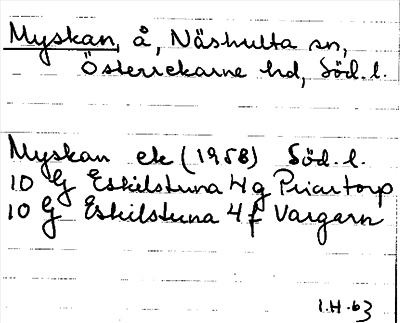 Myskan, å, Näshulta sn,
Österrekarne hd, Söd. l.
Myskan ek (1958) Söd. l.
10 G Eskilstuna 4 g Priortorp
10 G Eskilstuna 4 f Vargarn
I.H-63